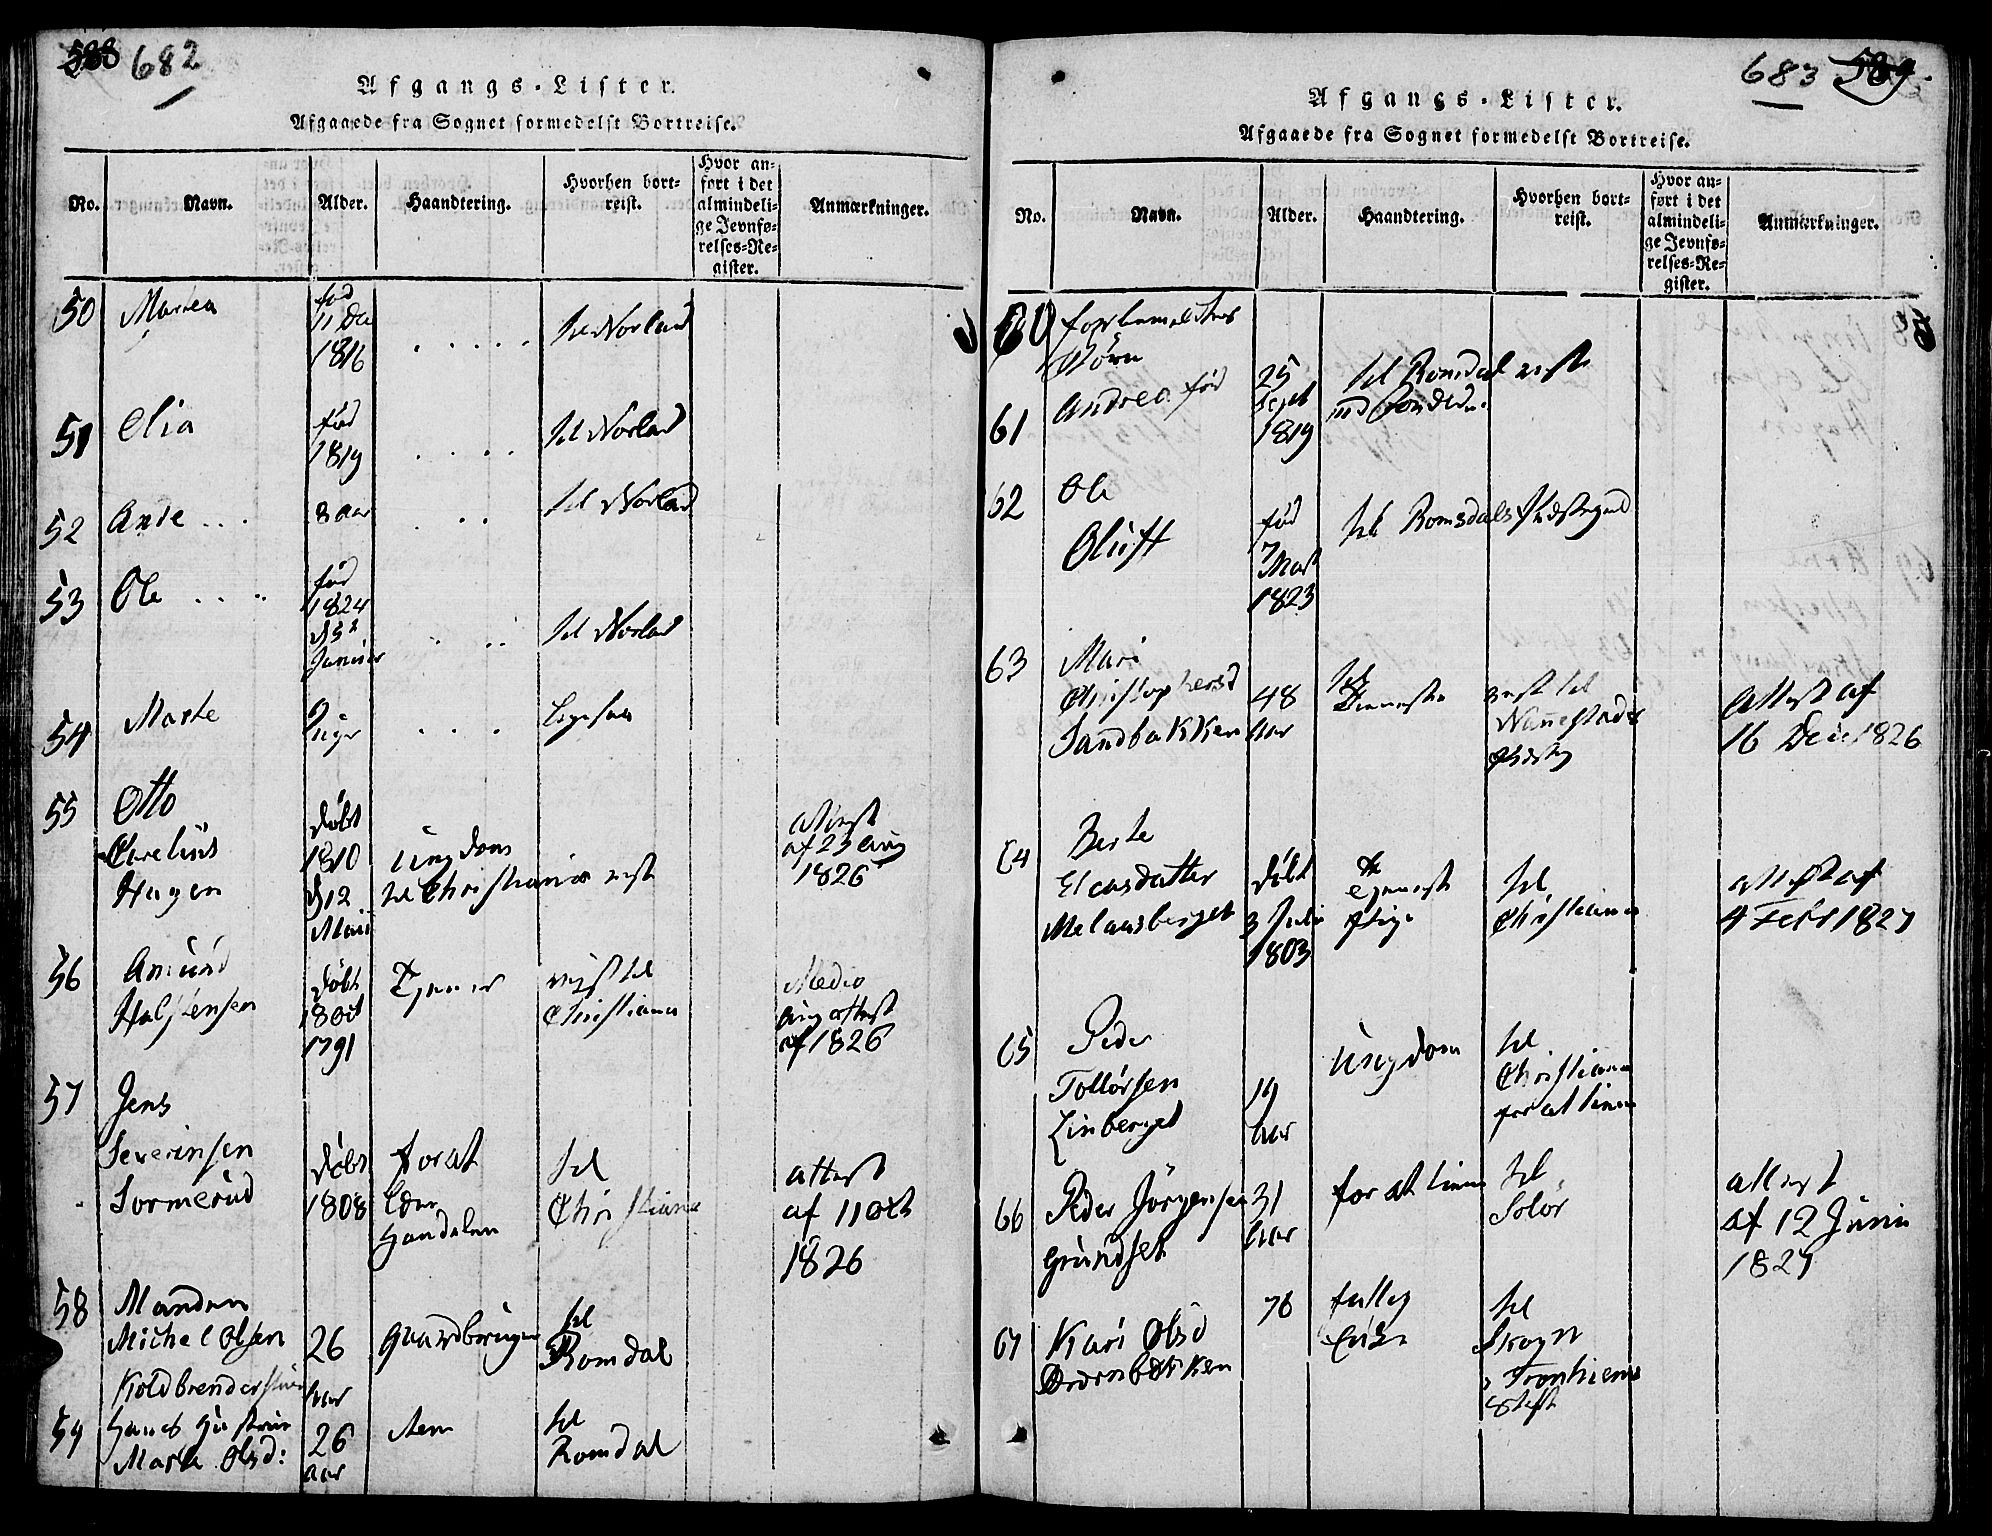 588 682
Afgangs-Lister.
Afgaaede fra Sognet formedelst Bortreise.
No. Navn. Alder. Haandtering. Hvorhen bortreist. Hvor anført i det almindelige Jevnførelses-Register. Anmærkninger.
50 Marten fød 11 Dec 1816 . . . . . til Norland
51 Olia fød 1819 . . . . til Norland
52 Ande . . . 8 aar . . til Norland
53 Ole . . . . fød 1824 Januar til Norland
54 Marte 9 uger . . . . ligesaa
55 Otto
Hagen
døbt 1810 d 12 Maii
Ungdom til Christiania reist
attest af 23 Aug 1826
56 Amund
døbt 18 oct 1791
Tjener
reist til Christiania
Medio Aug attest af 1826
57 Jens
Severinsen
Sormerud
døbt 1808
for at
til Christiania
attest af 11 oct 1826
58 Manden
Michel Olsen
26 aar
Gaardbruger
til Romdal
59 Hans Hustrue
Marte Olsd:
26 aar
til Romdal
683 589
Afgangs-Lister.
Afgaaede fra Sognet formedelst Bortreise.
No. Navn. Alder. Haandtering. Hvorhen bortreist. Hvor anført i det almindelige Jevnførelses-Register. Anmærkninger.
60 forbemeldtes
Børn
61 Andrea fød 25 Sept 1819
til Romsdal reist
62 Ole
Oluf
fød 7 Mart 1823
til Romsdals
63 Mari
Christophersd
Sandbakken
48 aar
til Tieneste
reist til Nannestads
Attest af
16 Dec 1826
64 Berte
Eliasdatter
Melaasberget
døbt 3 Julii 1803
til Christiania
attest af
4 Febr 1827
65 Peder
Tollefsen
Linberget
19 aar
Ungdom
til Christiania
for at tiene
66 Peder Jörgensen
Grundset
31 aar
for at tiene
til Solör
attest
af 12 Junii
1827
67 Kari Olsd
76
fattig Enke
til Skogn
i Tronhiems Stift